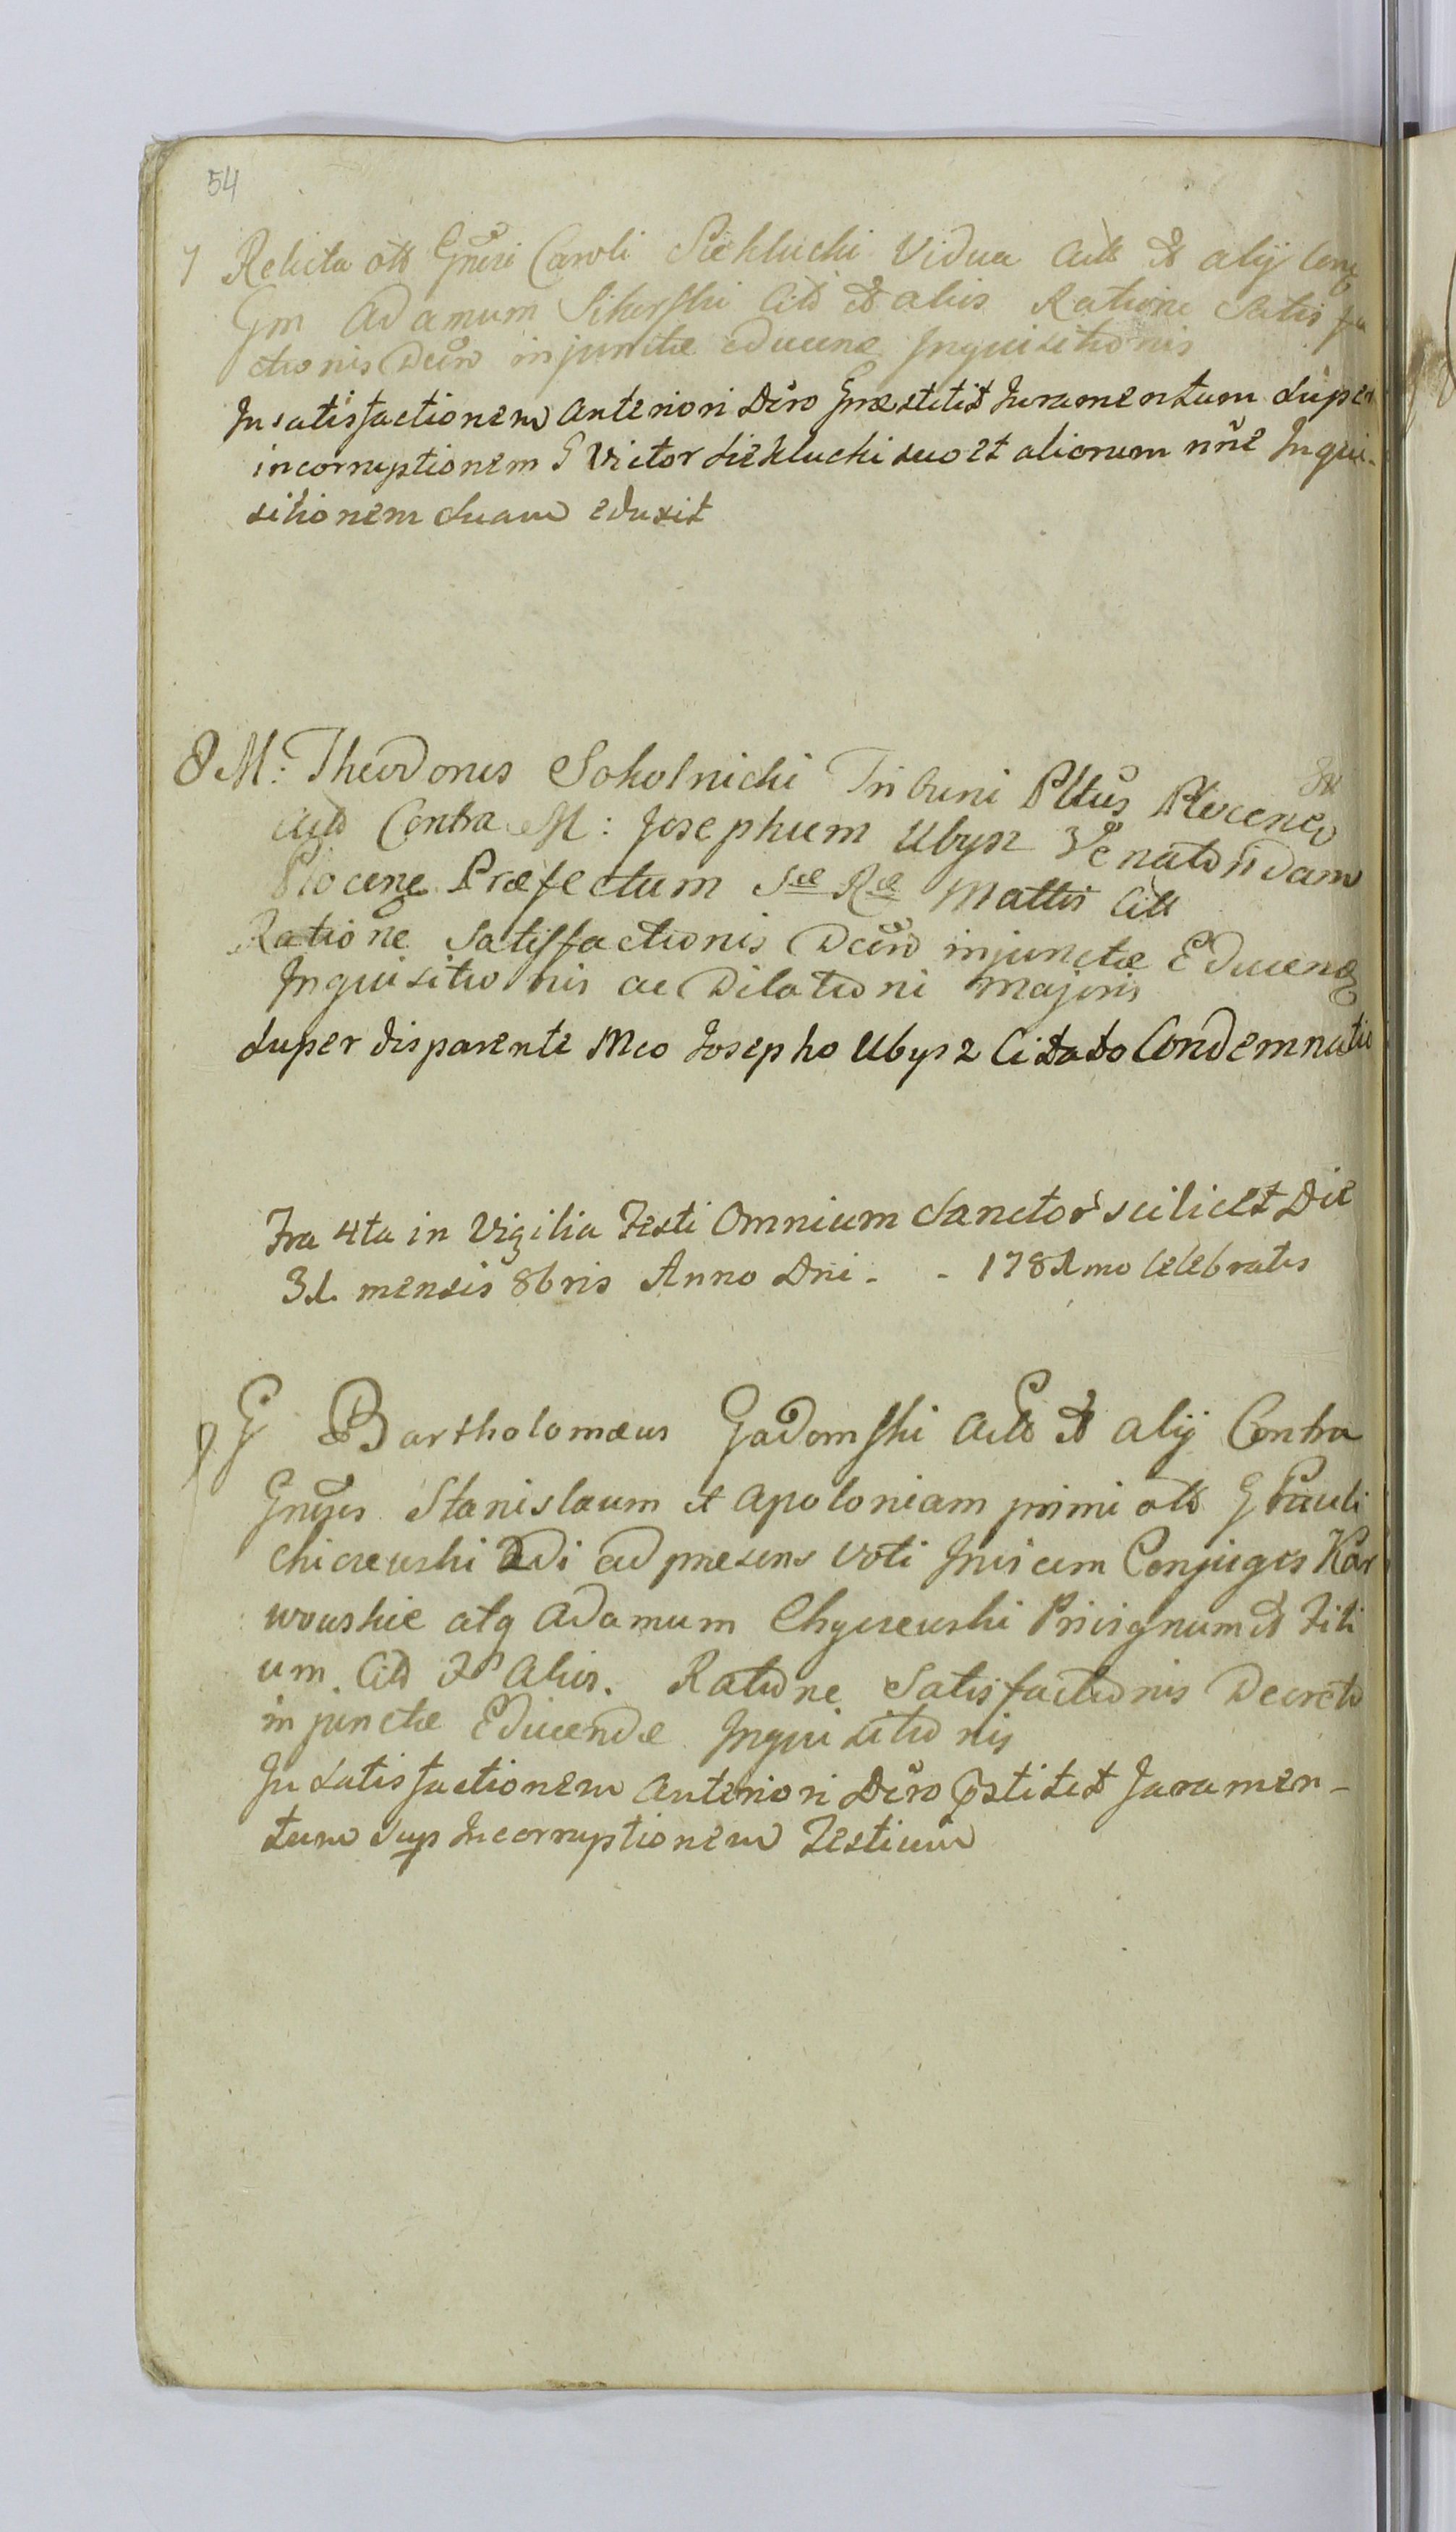 54
7 Relicta olt Gnusi Caroli Siekłucki Vidua Actt et alij Conẽ
Gm Adamum Sikorski Citt et aliis Ratione Satisfa
ctionis Dcũo injunctæ educenæ Inquisitionis
In satisfactionem anteriori Dcro præstitit Juramentum super
incorruptionem G Victor Siekłucki suo et aliorum nñe Inqui-
sitionem suam eduxit
8 M: Theodorus Sokolnicki Tribuni Pltus Plocenẽ
Act Contra M: Josephum Ubysz Venatoridam
Plocenẽ Præfectum Sæ Ræ Mattis Citt
Ratione Satisfactionis Dcũo injunctæ Educenæ
Inquisitionis ac Dilationi Majoris
Super disparente Mco Josepho Ubysz Citato Condemnatio
Fra 4ta in Vigilia Festi Omnium Sanctor scilicet Die
31. mensis 8bris Anno Dni - - 1781mo Celebratis
G Bartholomæus Gadomski Actt et alij Contra
Gnũs Stanislaum et Apoloniam primi olt G Pauli
Chicrewski 2di ad præsens Voti Invicem Conjuges Kar
wowskie atq Adamum Chycrewski Privignum et Fili
um Citt et Aliis. Ratione Satisfactionis Decreto
injunctæ Educendæ Inquisitionis
In Satisfactionem anteriori Dcro pstitit Juramen-
tum sup Incorruptionem Testium